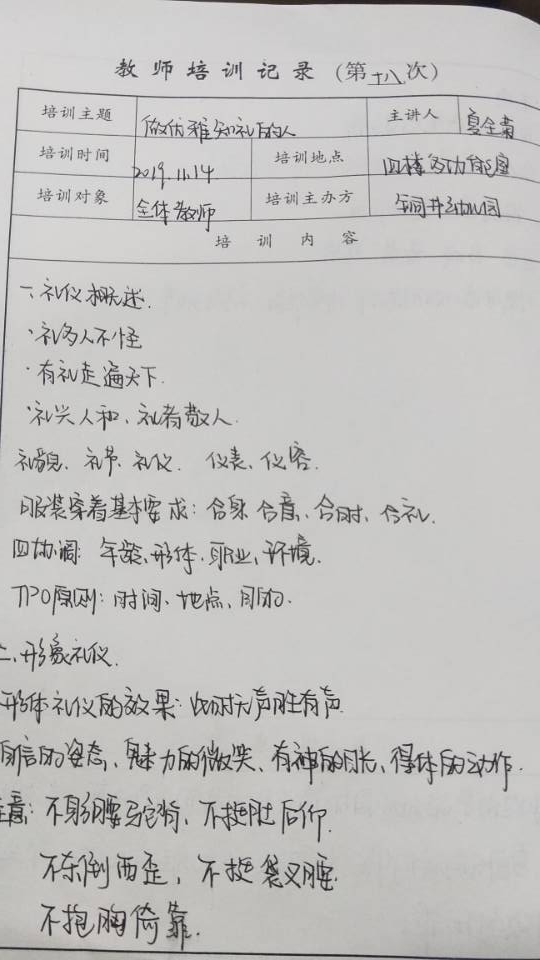 教师培训记录（第十八次）
培训主题 做优雅知礼的人 主讲人 夏全菊
培训时间 2019.11.14 培训地点 四楼多功能室
培训对象 全体教师 培训主办方 铜井幼儿园
培训内容
一、礼仪概述.
·礼多人不怪
·有礼走遍天下.
·礼兴人和、礼者敬人.
礼貌、礼节、礼仪. 仪表、仪容.
服装穿着基本要求：合身、合意、合时、合礼.
四协调：年龄、形体、职业、环境.
TPO原则：时间、地点、目的.
二、形象礼仪.
形体礼仪的效果：此时无声胜有声.
自信的姿态、魅力的微笑、有神的目光、得体的动作.
注意：不躬腰驼背、不挺肚后仰.
不东倒西歪，不插袋叉腰.
不抱胸倚靠.